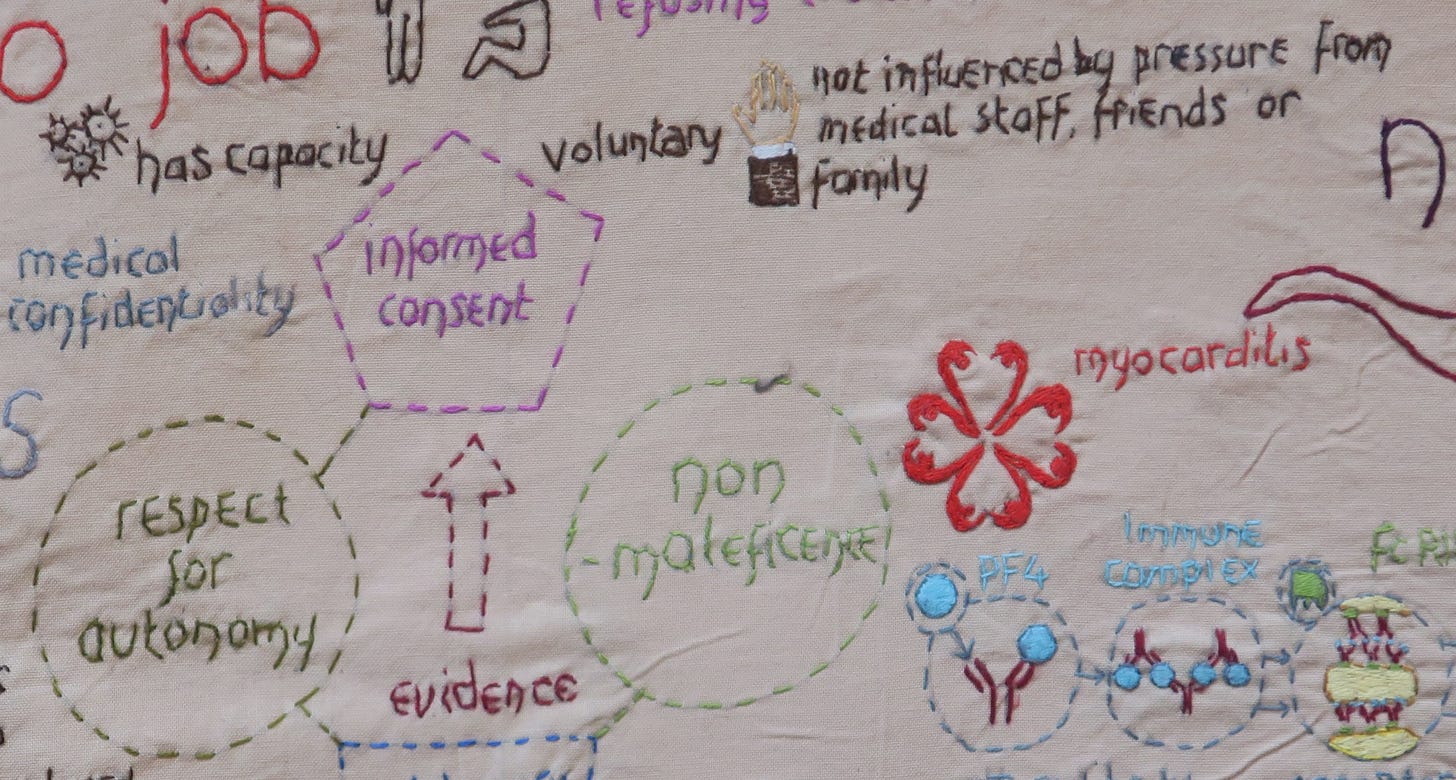 refusing
o job
has capacity
voluntary
not influenced by pressure from
medical staff, friends or
family
n
medical
confidentiality
informed
consent
myocarditis
S
respect
for
autonomy
non
-maleficence
evidence
PF4
immune
complex